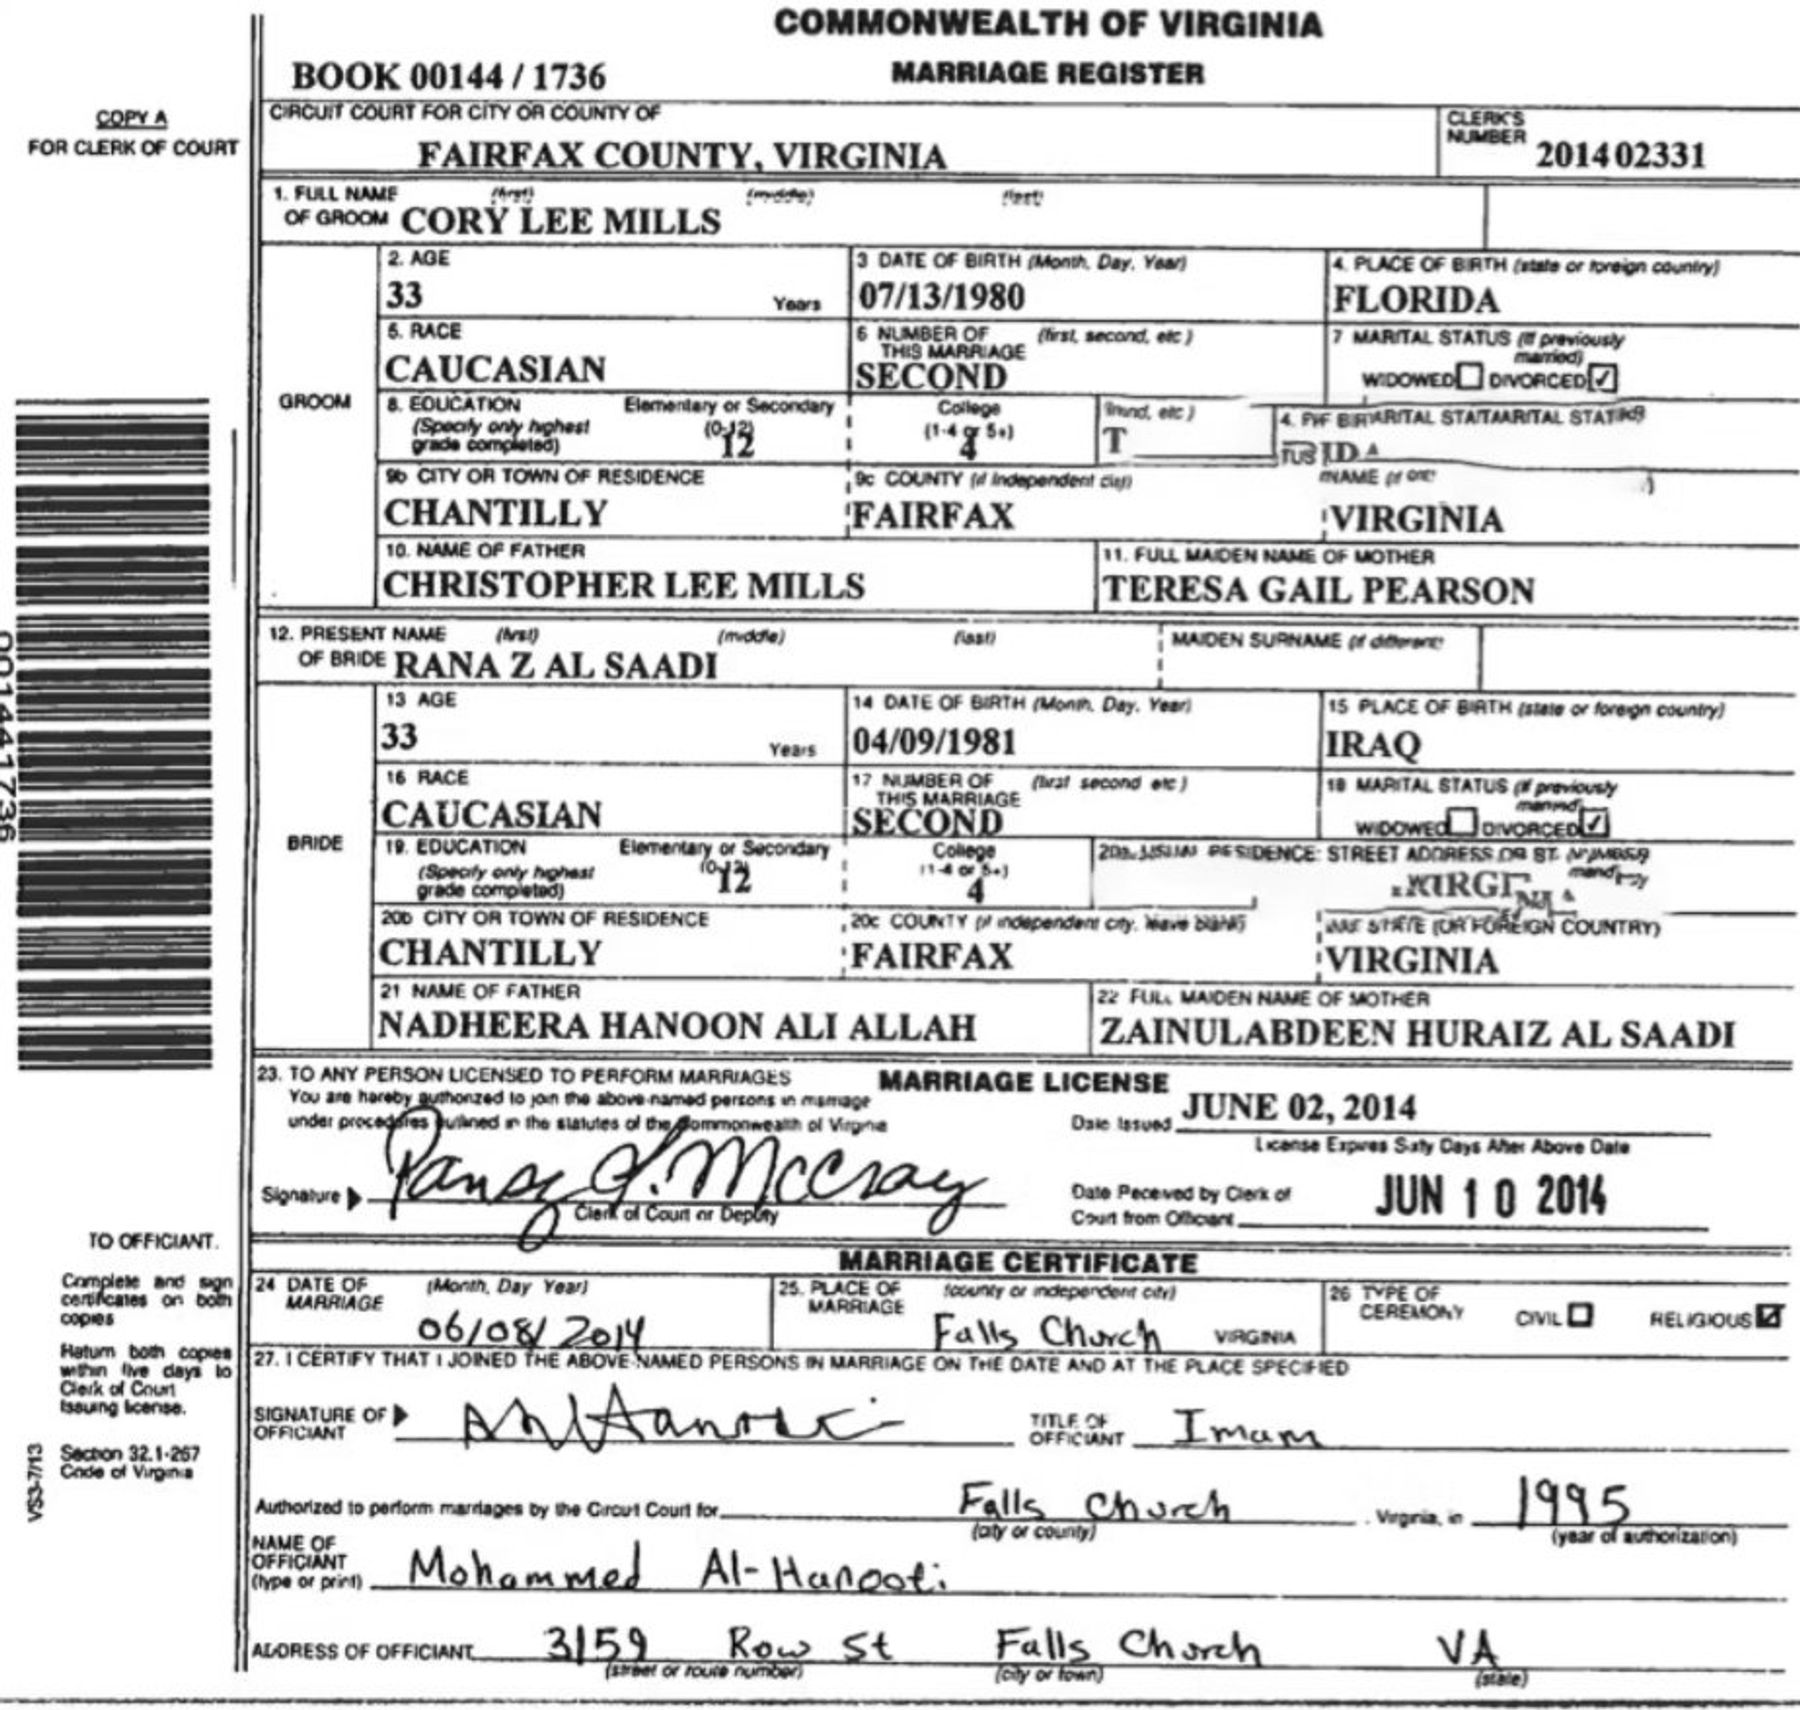 COMMONWEALTH OF VIRGINIA
BOOK 00144 / 1736 MARRIAGE REGISTER
COPY A
FOR CLERK OF COURT
CIRCUIT COURT FOR CITY OR COUNTY OF
FAIRFAX COUNTY, VIRGINIA
CLERK'S NUMBER 201402331
1. FULL NAME OF GROOM (first) (middle) (last)
CORY LEE MILLS
GROOM
2. AGE 33 Years
3 DATE OF BIRTH (Month, Day, Year) 07/13/1980
4. PLACE OF BIRTH (state or foreign country) FLORIDA
5. RACE CAUCASIAN
6 NUMBER OF THIS MARRIAGE (first, second, etc) SECOND
7 MARITAL STATUS (If previously married) WIDOWED DIVORCED ✓
8. EDUCATION (Specify only highest grade completed) Elementary or Secondary (0-12) 12
College (1-4 or 5+) 4
9b CITY OR TOWN OF RESIDENCE CHANTILLY
9c COUNTY (if Independent FAIRFAX
VIRGINIA
10. NAME OF FATHER CHRISTOPHER LEE MILLS
11. FULL MAIDEN NAME OF MOTHER TERESA GAIL PEARSON
12. PRESENT NAME OF BRIDE (first) (middle) (last) RANA Z AL SAADI
MAIDEN SURNAME (if different)
BRIDE
13 AGE 33 Years
14 DATE OF BIRTH (Month, Day, Year) 04/09/1981
15 PLACE OF BIRTH (state or foreign country) IRAQ
16 RACE CAUCASIAN
17 NUMBER OF THIS MARRIAGE (first second etc) SECOND
18 MARITAL STATUS (if previously married) WIDOWED DIVORCED ✓
19. EDUCATION (Specify only highest grade completed) Elementary or Secondary (0-12) 12
College (1-4 or 5+) 4
RESIDENCE: STREET ADDRESS OR ST.
20b CITY OR TOWN OF RESIDENCE CHANTILLY
20c COUNTY (if independent city, leave blank) FAIRFAX
STATE (OR FOREIGN COUNTRY) VIRGINIA
21 NAME OF FATHER NADHEERA HANOON ALI ALLAH
22 FULL MAIDEN NAME OF MOTHER ZAINULABDEEN HURAIZ AL SAADI
001441736
23. TO ANY PERSON LICENSED TO PERFORM MARRIAGES
MARRIAGE LICENSE
You are hereby authorized to join the above-named persons in marriage
under procedures outlined in the statutes of the Commonwealth of Virginia
Date Issued JUNE 02, 2014
License Expires Sixty Days After Above Date
Signature Pansy J. McCray
Clerk of Court or Deputy
Date Received by Clerk of Court from Officiant JUN 10 2014
MARRIAGE CERTIFICATE
24 DATE OF MARRIAGE (Month, Day Year) 06/08/2014
25. PLACE OF MARRIAGE (county or independent city) Falls Church VIRGINIA
26 TYPE OF CEREMONY CIVIL RELIGIOUS ✓
27. I CERTIFY THAT I JOINED THE ABOVE-NAMED PERSONS IN MARRIAGE ON THE DATE AND AT THE PLACE SPECIFIED
SIGNATURE OF OFFICIANT
TITLE OF OFFICIANT Imam
Authorized to perform marriages by the Circuit Court for Falls Church Virginia, in 1995
(city or county) (year of authorization)
NAME OF OFFICIANT (type or print) Mohammed Al-Hanooti
ADDRESS OF OFFICIANT 3159 Row St Falls Church VA
(street or route number) (city or town) (state)
TO OFFICIANT.
Complete and sign
certificates on both
copies
Return both copies
within five days to
Clerk of Court
issuing license.
Section 32.1-267
Code of Virginia
VS3-7/13